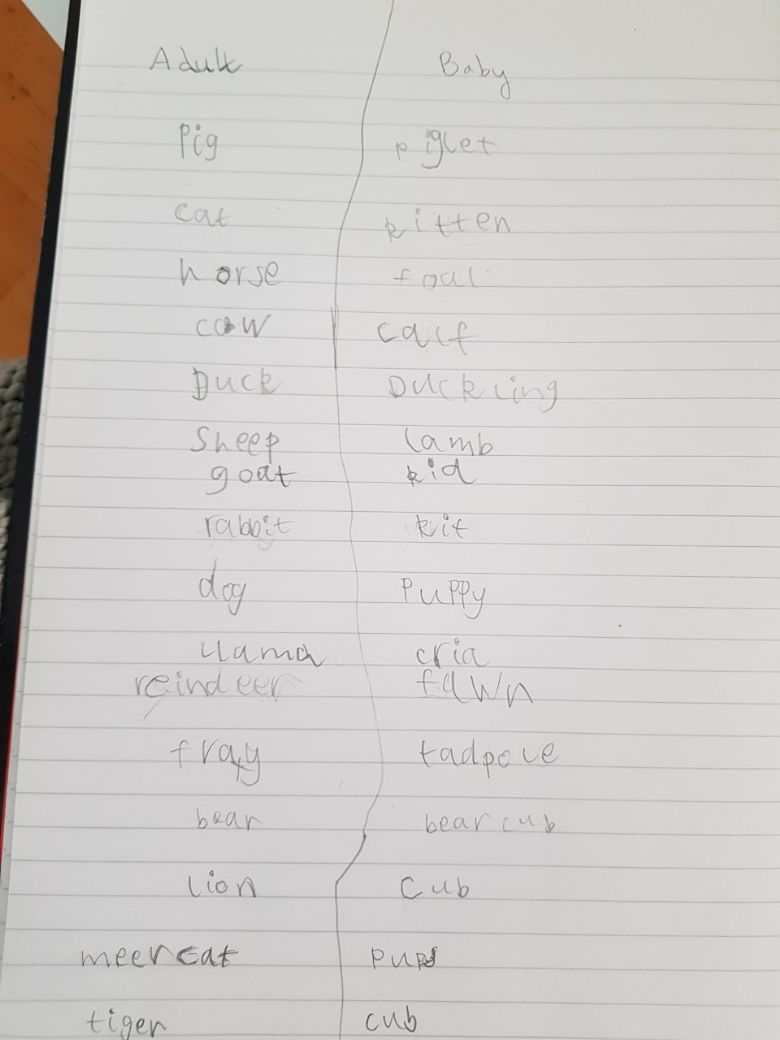 Adult Baby
Pig piglet
cat kitten
horse foal
cow calf
Duck Duckling
Sheep lamb
goat kid
rabbit kit
dog Puppy
llama cria
reindeer fawn
tadpole
bear bear cub
lion Cub
meercat pup
tiger cub